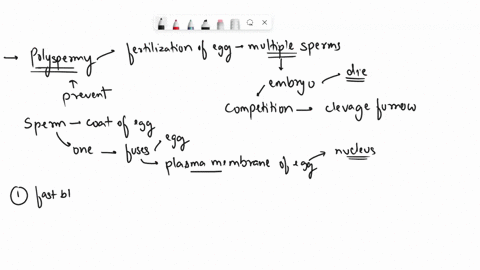 → Polyspermy → fertilization of egg → multiple sperms
prevent
embryo → die
competition → clevage furrow
Sperm → coat of egg
one → fuses → egg
plasma membrane of egg → nucleus
① fast bl